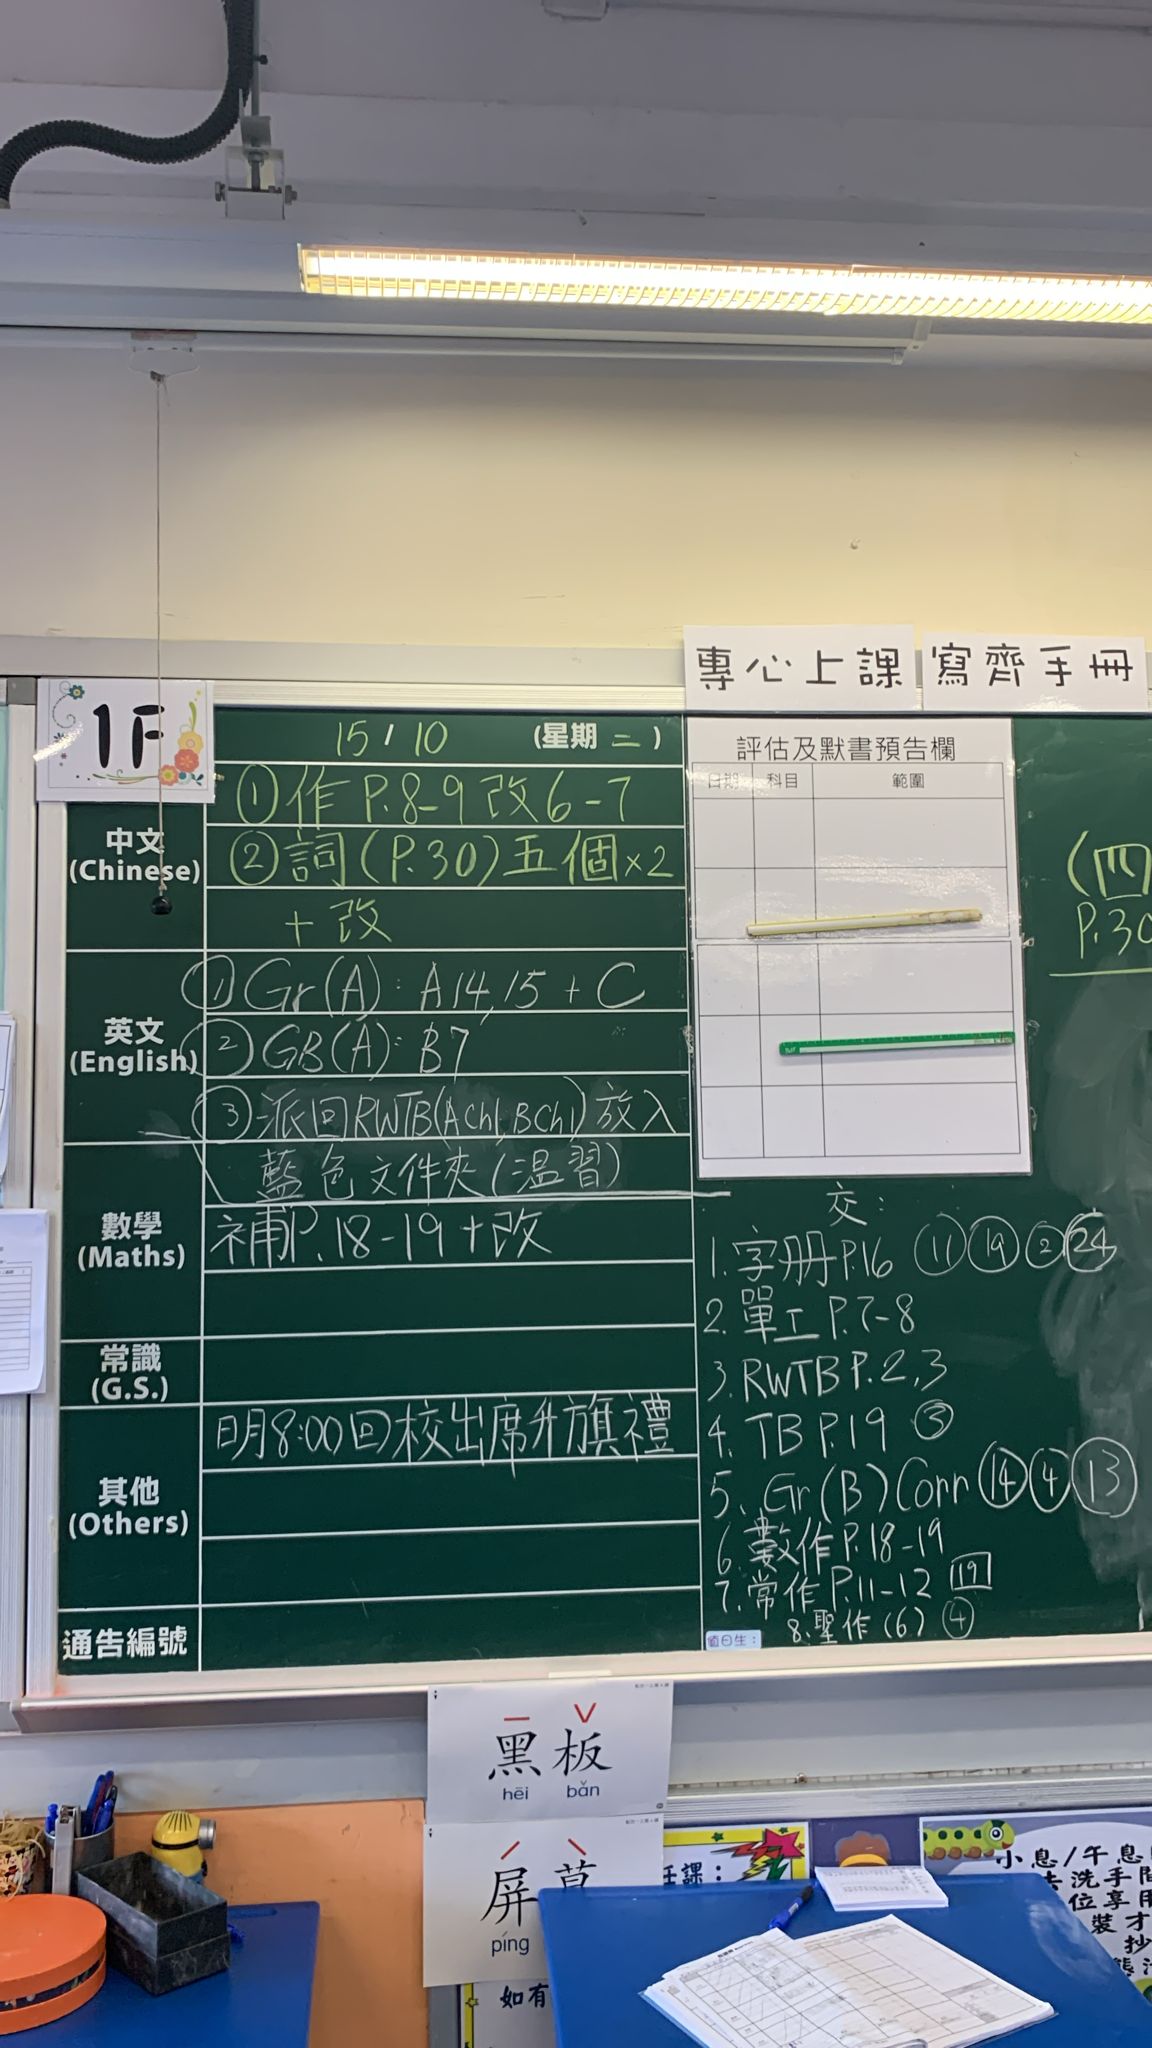 專心上課 寫齊手冊
1F
15/10 (星期二)
中文
(Chinese)
①作P.8-9改6-7
②詞(P.30)五個×2
+改
英文
(English)
①Gr(A): A14,15 + C
②GB(A): B7
③派回RWTB(ACh1,BCh1)放入
藍色文件夾(溫習)
數學
(Maths)
補P.18-19+改
常識
(G.S.)
其他
(Others)
明8:00回校出席升旗禮
通告編號
評估及默書預告欄
日期 科目 範圍
(四
P.30
交:
1. 字冊P.16 ⑪ ⑲ ② ㉔
2. 單工P.7-8
3. RWTB P.2,3
4. TB P.19 ③
5. Gr(B)Corr ⑭ ④ ⑬
6. 數作P.18-19
7. 常作P.11-12 19
8. 聖作(6) ④
值日生:
黑板
hēi bǎn
屏
píng
課:
如有
小息/午息
洗手間
位享用
裝才
抄